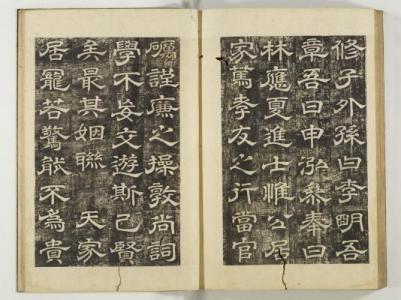 修子外孫曰李明吾
章吾曰申泓黎奉曰
林應夏進士惟公居
家篤孝友之行當官
礪謹廉之操敦尚詞
學不妄交遊斯已賢
矣最其姻聯天家
居寵若驚能不為貴